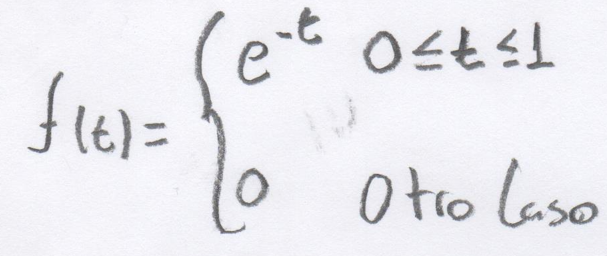 f(t)= { e^-t 0≤t≤1
0 Otro Caso